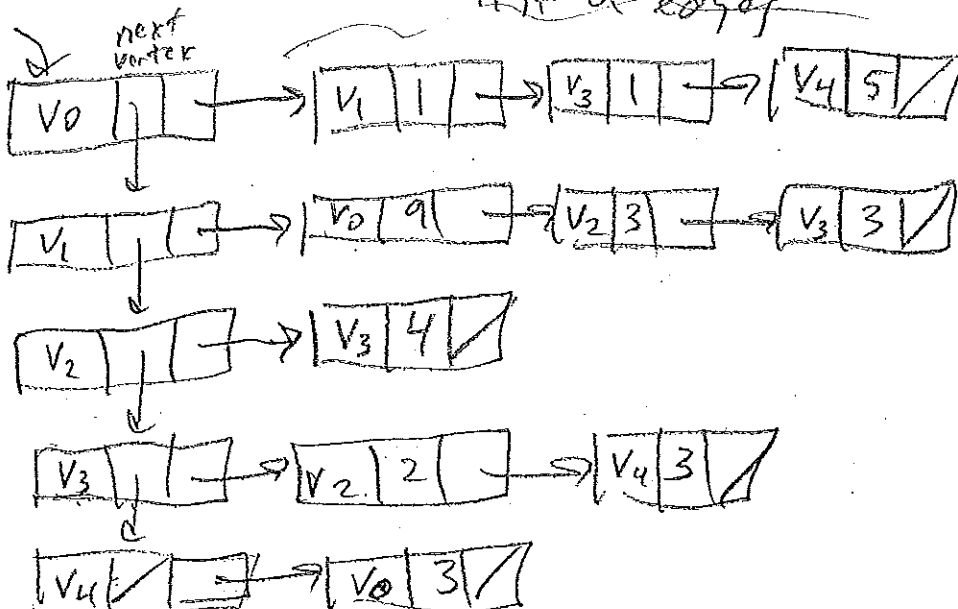 edges
next
vertex
V0 V1 1 V3 1 V4 5
V1 V0 9 V2 3 V3 3
V2 V3 4
V3 V2 2 V4 3
V4 V0 3